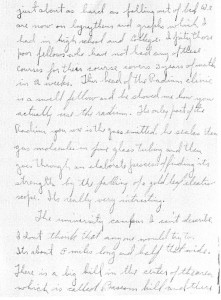 just about as hard as falling out of bed. We
are now on logarithms and graphs which I
had in high school and College. I pity those
poor fellows who have not had any of these
courses for these course covers 2 years of math
in a week. The head of the Radium clinic
is a small fellow and he showed us how you
actually use the radium. The only part of the
Radium you use is the gas emitted he seals the
gas molecules in fine glass tubing and then
goes through an elaborate process of finding its
strength by the falling of a gold leaf electro
scope. It's really very interesting.
The university campus I can't describe
I don't think that anyone would try to.
Its about 5 miles long and half that wide.
There is a big hill in the center of the area
which is called Bascom hill and there